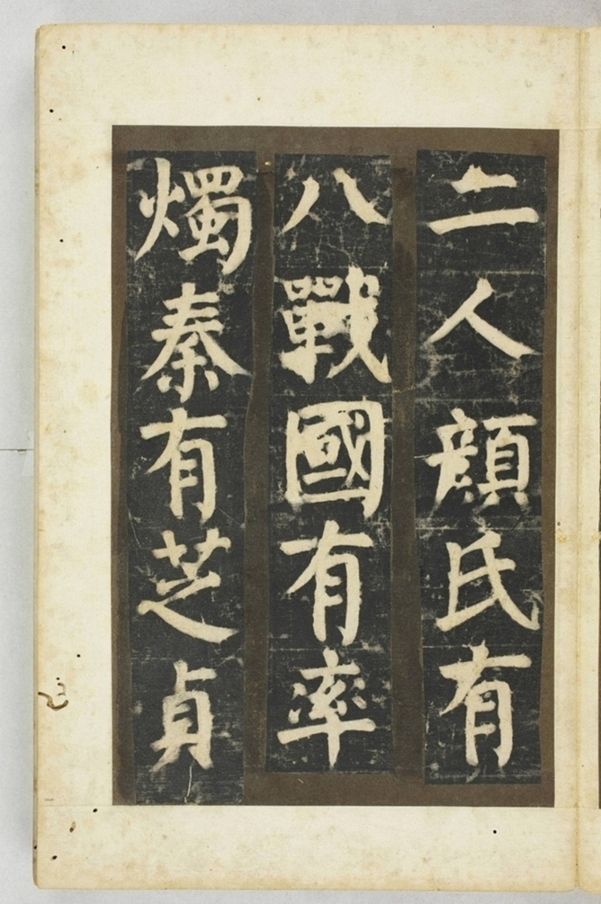 二人顔氏有
八戰國有率
燭秦有芝貞